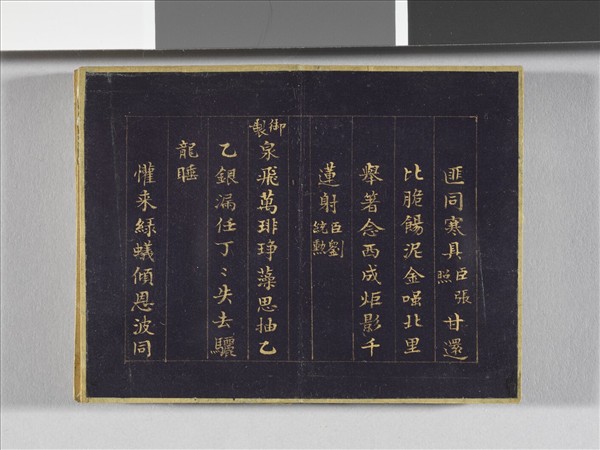 匪同寒具臣張照甘還
比脆餳泥金北里
舉著念西成炬影千
蓮射臣劉統勲
御製泉飛萬琲琤藻思抽乙
乙銀漏任丁〻失去驪
龍睡
懽来綠蟻傾恩波同